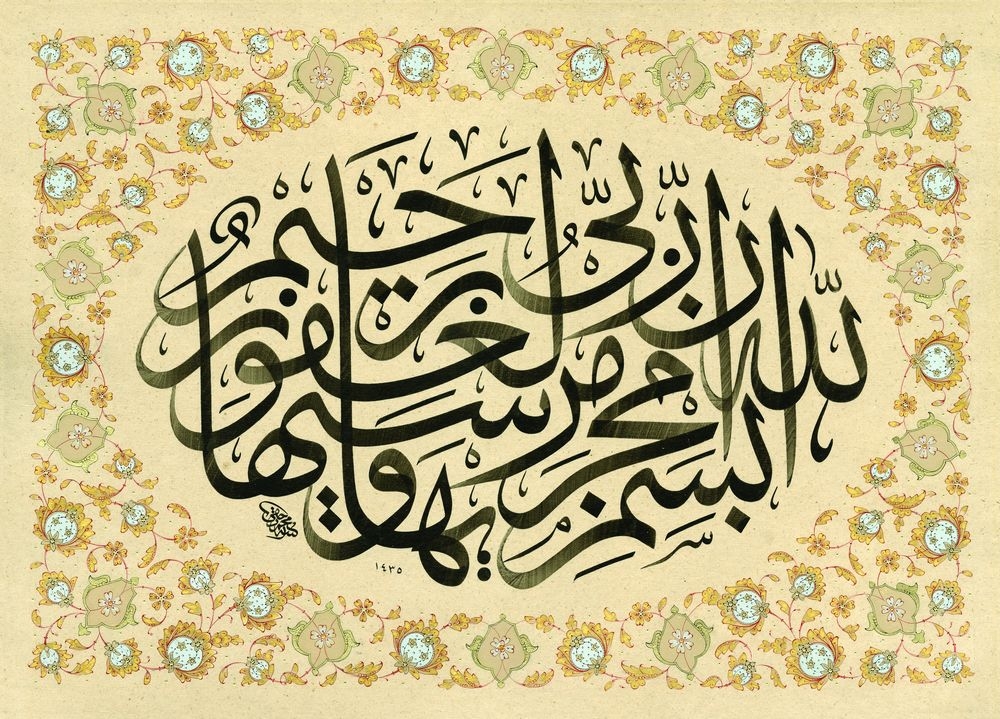 بسم الله مجريها ومرسيها ان ربي لغفور رحيم
١٤٣٥